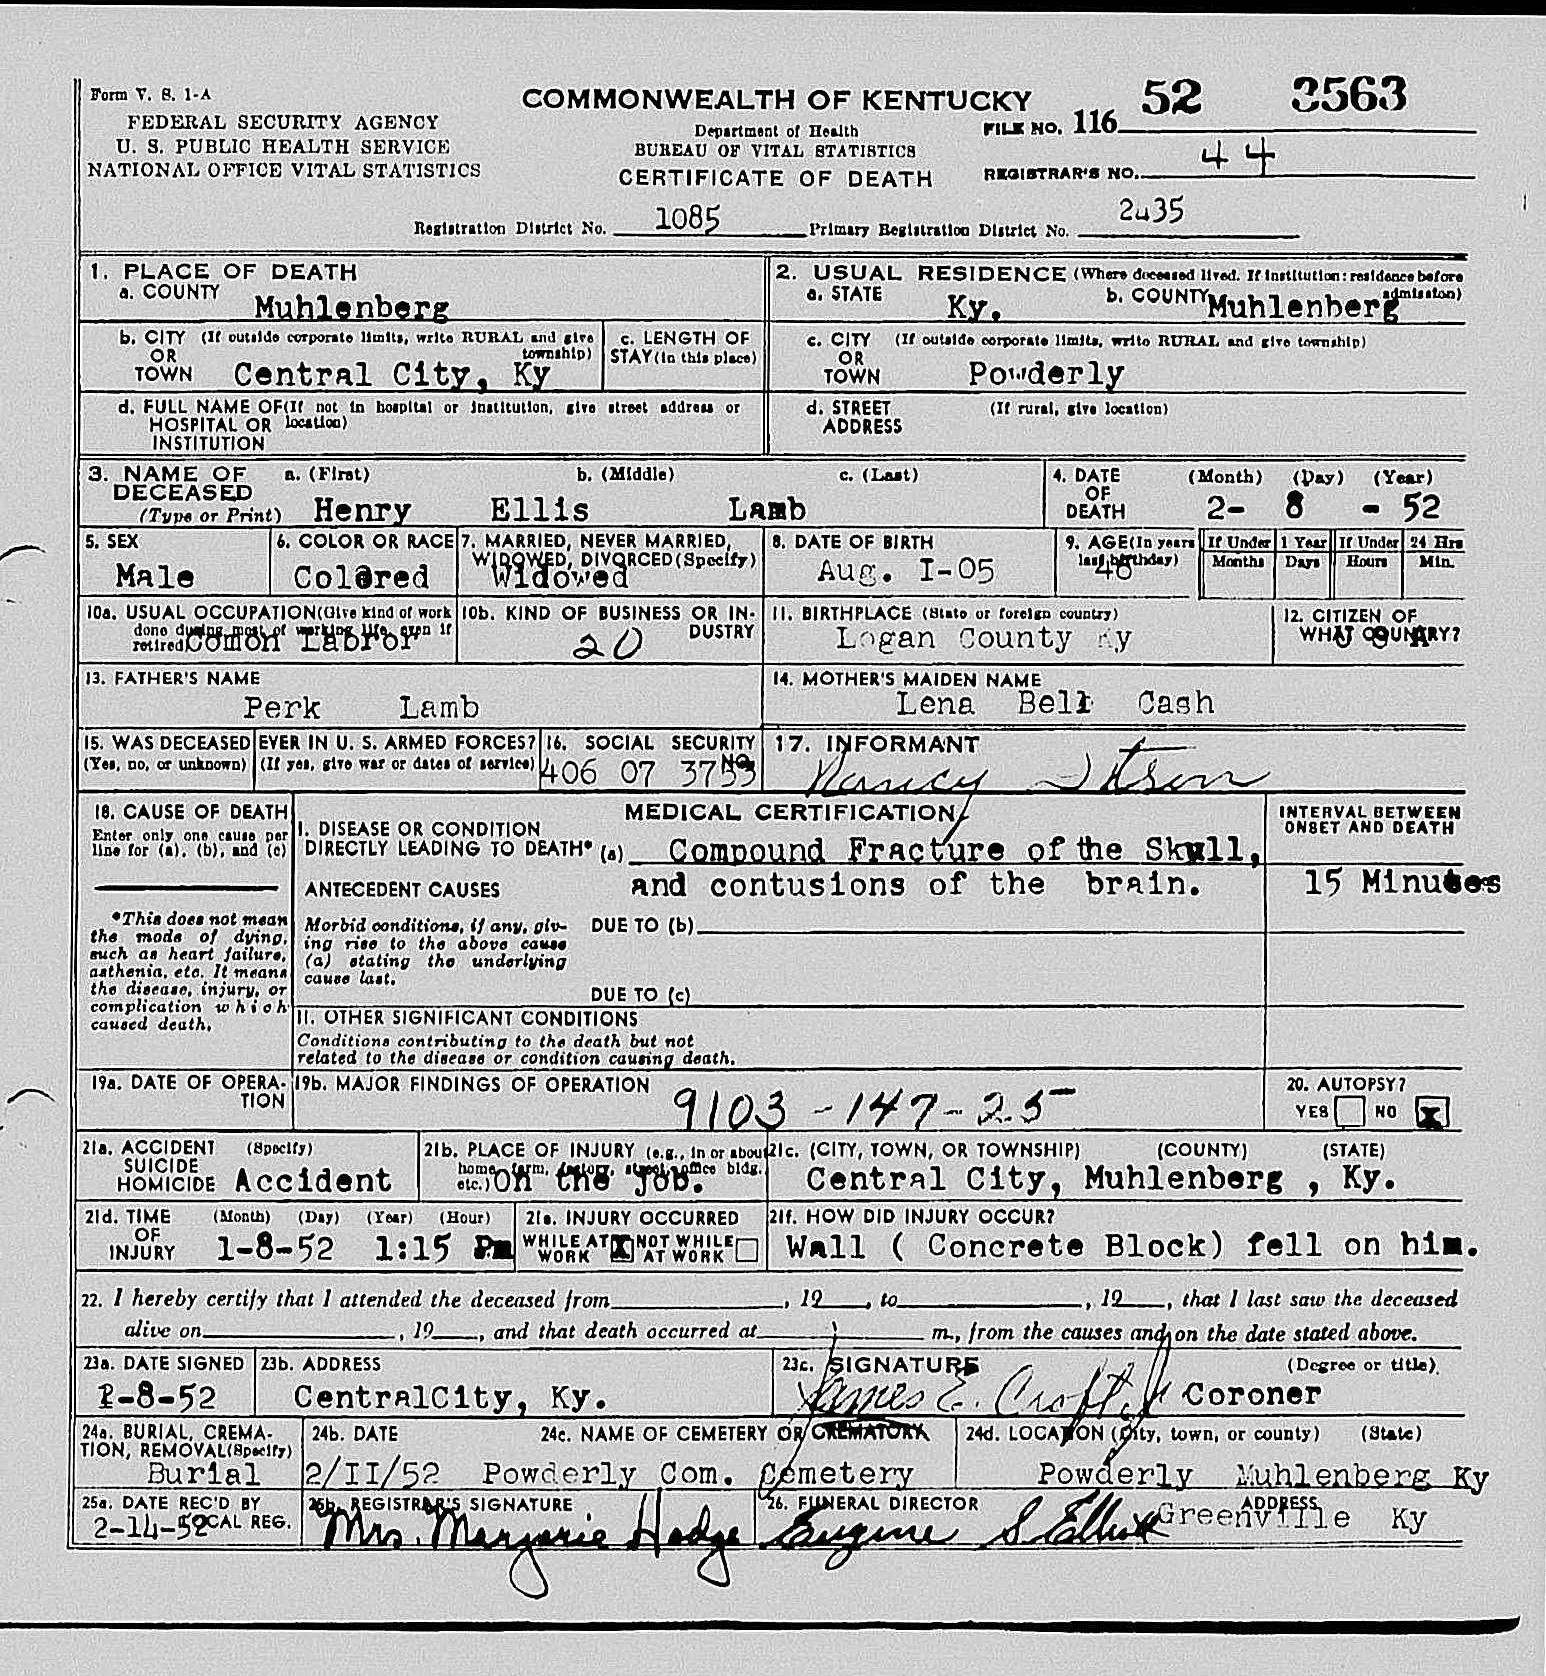 Form V. S. 1-A
FEDERAL SECURITY AGENCY
U. S. PUBLIC HEALTH SERVICE
NATIONAL OFFICE VITAL STATISTICS
COMMONWEALTH OF KENTUCKY
Department of Health
BUREAU OF VITAL STATISTICS
CERTIFICATE OF DEATH
FILE NO. 116 52 3563
REGISTRAR'S NO. 44
Registration District No. 1085 Primary Registration District No. 2435
1. PLACE OF DEATH
a. COUNTY Muhlenberg
b. CITY (If outside corporate limits, write RURAL and give township)
OR
TOWN Central City, Ky
c. LENGTH OF
STAY (in this place)
d. FULL NAME OF (If not in hospital or institution, give street address or location)
HOSPITAL OR
INSTITUTION
2. USUAL RESIDENCE (Where deceased lived. If institution: residence before admission)
a. STATE Ky. b. COUNTY Muhlenberg
c. CITY (If outside corporate limits, write RURAL and give township)
OR
TOWN Powderly
d. STREET (If rural, give location)
ADDRESS
3. NAME OF DECEASED a. (First) b. (Middle) c. (Last)
(Type or Print) Henry Ellis Lamb
4. DATE OF DEATH (Month) (Day) (Year)
2- 8 - 52
5. SEX
Male
6. COLOR OR RACE
Colored
7. MARRIED, NEVER MARRIED,
WIDOWED, DIVORCED (Specify)
Widowed
8. DATE OF BIRTH
Aug. I-05
9. AGE (In years last birthday)
46
If Under 1 Year
Months Days
If Under 24 Hrs
Hours Min.
10a. USUAL OCCUPATION (Give kind of work done during most of working life, even if retired)
Comon Labror
10b. KIND OF BUSINESS OR INDUSTRY
20
11. BIRTHPLACE (State or foreign country)
Logan County Ky
12. CITIZEN OF WHAT COUNTRY?
U S A
13. FATHER'S NAME
Perk Lamb
14. MOTHER'S MAIDEN NAME
Lena Bell Cash
15. WAS DECEASED EVER IN U. S. ARMED FORCES?
(Yes, no, or unknown) (If yes, give war or dates of service)
16. SOCIAL SECURITY NO.
406 07 3753
17. INFORMANT
Nancy
18. CAUSE OF DEATH
Enter only one cause per
line for (a), (b), and (c)
*This does not mean
the mode of dying,
such as heart failure,
asthenia, etc. It means
the disease, injury, or
complication which
caused death.
MEDICAL CERTIFICATION
I. DISEASE OR CONDITION
DIRECTLY LEADING TO DEATH* (a) Compound Fracture of the Skull,
and contusions of the brain.
ANTECEDENT CAUSES
Morbid conditions, if any, giv-
ing rise to the above cause
(a) stating the underlying
cause last.
DUE TO (b)
DUE TO (c)
II. OTHER SIGNIFICANT CONDITIONS
Conditions contributing to the death but not
related to the disease or condition causing death.
INTERVAL BETWEEN
ONSET AND DEATH
15 Minutes
19a. DATE OF OPERA-
TION
19b. MAJOR FINDINGS OF OPERATION
9103 - 147 - 25
20. AUTOPSY?
YES NO X
21a. ACCIDENT (Specify)
SUICIDE
HOMICIDE Accident
21b. PLACE OF INJURY (e.g., in or about
home, farm, factory, street, office bldg.,
etc.) On the job.
21c. (CITY, TOWN, OR TOWNSHIP) (COUNTY) (STATE)
Central City, Muhlenberg , Ky.
21d. TIME OF INJURY (Month) (Day) (Year) (Hour)
1-8-52 1:15 Pm
21e. INJURY OCCURRED
WHILE AT WORK X NOT WHILE AT WORK
21f. HOW DID INJURY OCCUR?
Wall ( Concrete Block) fell on him.
22. I hereby certify that I attended the deceased from , 19 , to , 19 , that I last saw the deceased
alive on , 19 , and that death occurred at m., from the causes and on the date stated above.
23a. DATE SIGNED
2-8-52
23b. ADDRESS
CentralCity, Ky.
23c. SIGNATURE (Degree or title)
James E. Croft Coroner
24a. BURIAL, CREMA-
TION, REMOVAL (Specify)
Burial
24b. DATE
2/II/52
24c. NAME OF CEMETERY OR CREMATORY
Powderly Com. Cemetery
24d. LOCATION (City, town, or county) (State)
Powderly Muhlenberg Ky
25a. DATE REC'D BY
LOCAL REG.
2-14-52
25b. REGISTRAR'S SIGNATURE
Mrs. Marjorie Hodge
26. FUNERAL DIRECTOR ADDRESS
Eugene S Elliott Greenville Ky